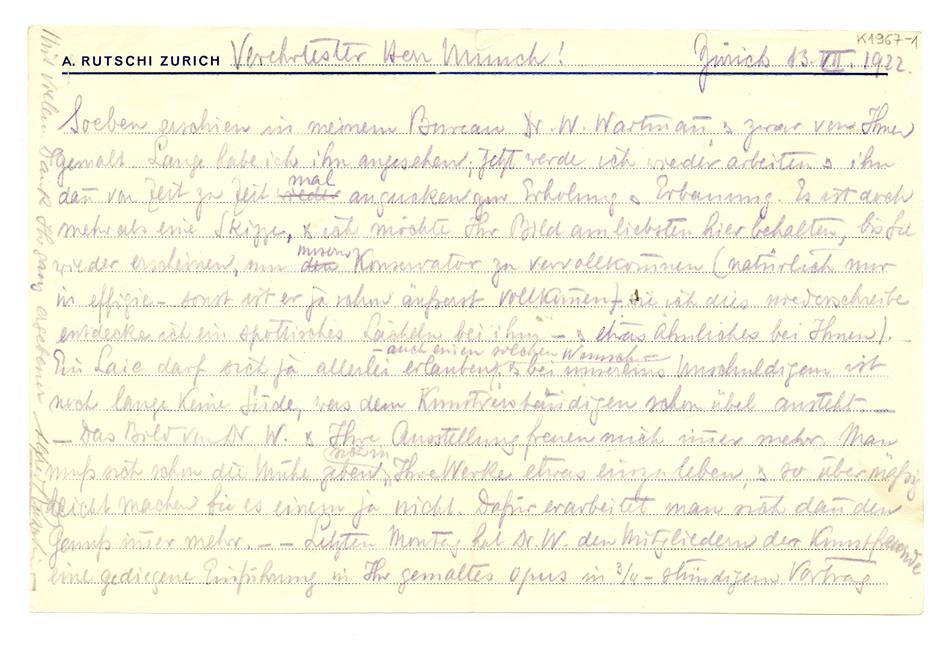 K1967-1
A. RUTSCHI ZURICH Verehrtester Herr Munch! Zürich 13. VII. 1922.
Soeben erschien in meinem Bureau Dr. W. Wartmañ, & zwar von Ihnen
gemalt. Lange habe ich ihn angesehen; jetzt werde ich wieder arbeiten & ihn
mal
dañ von Zeit zu Zeit wieder angucken zur Erholung & Erbauung. Es ist doch
mehr als eine Skizze, & ich möchte Ihr Bild am liebsten hier behalten, bis Sie
unsern
wieder erscheinen, um den Konservator zu vervollkom̄nen (natürlich nur
in effigie – sonst ist er ja schon äußerst vollkom̄en) – wie ich dies niederschreibe
entdecke ich ein spöttisches Lächeln bei ihm – & etwas ähnliches bei Ihnen). –
– auch einen solchen Wunsch –
Ein Laie darf sich ja allerlei erlauben, & bei unsereins Unschuldigem ist
noch lange keine Sünde, was dem Kunstverständigen schon übel ansteht. –
– Das Bild von Dr. W. & Ihre Ausstellung freuen mich im̄er mehr. Man
sich in
muß sich schon die Mühe geben, Ihre Werke etwas einzuleben, & so übermäßig
leicht machen Sie es einem ja nicht. Dafür erarbeitet man sich dañ den
Genuß im̄er mehr. – – Letzten Montag hat Dr. W. den Mitgliedern der Kunstfreunde
eine gediegene Einführung in Ihr gemaltes Opus in 3/4-stündigem Vortrag
Mit vielem Dank Ihr ganz ergebener